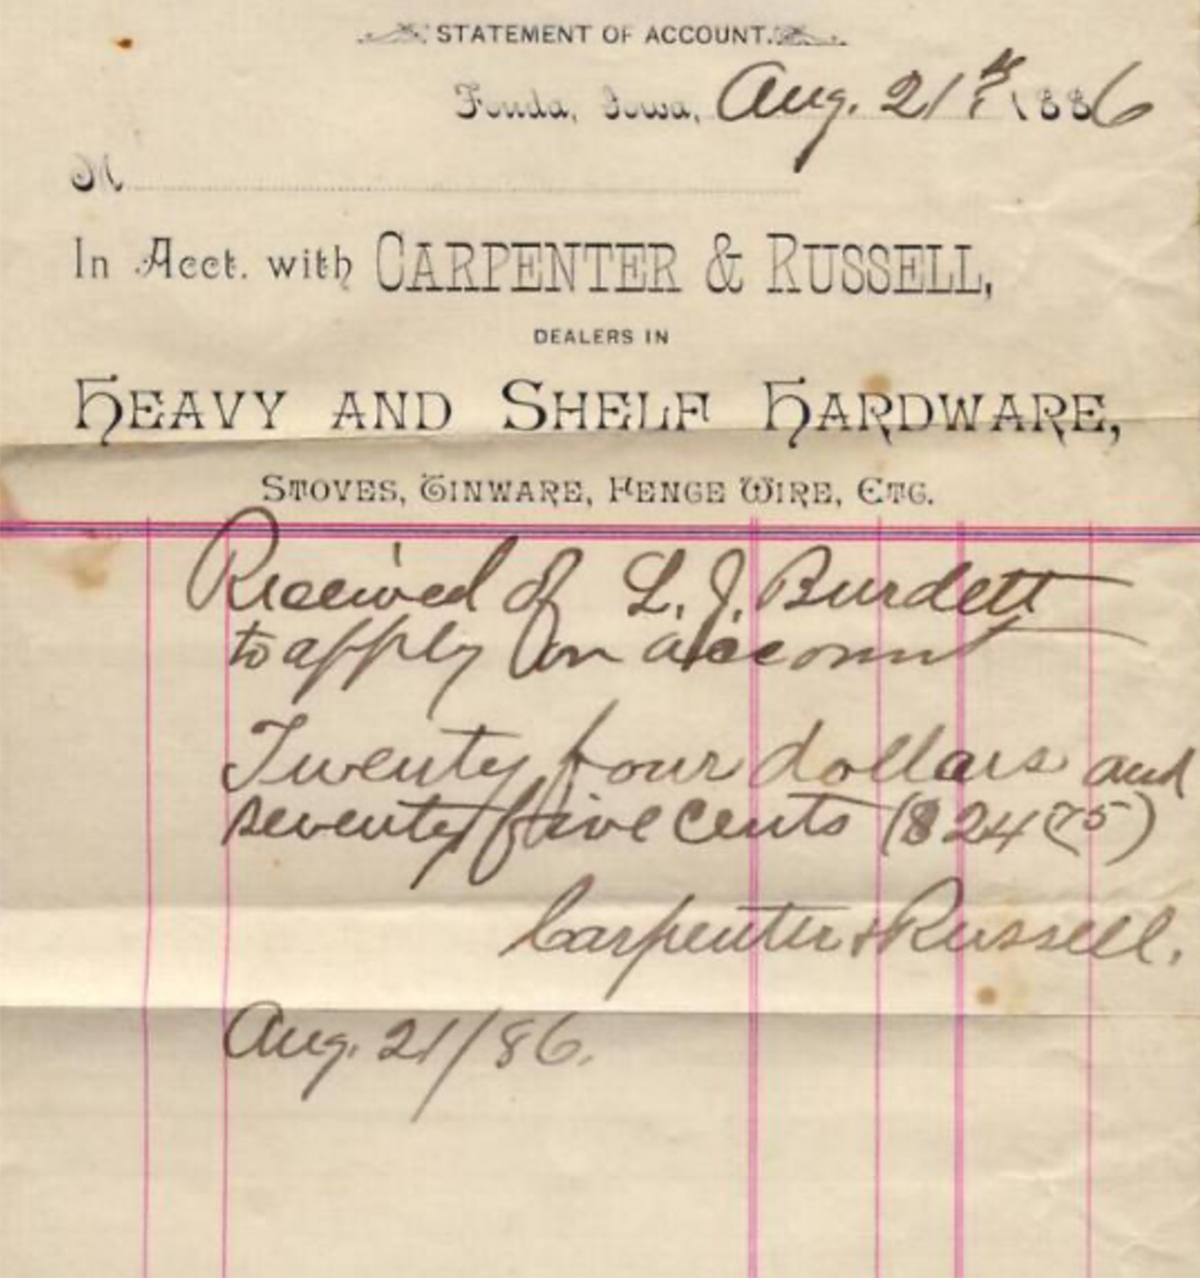 STATEMENT OF ACCOUNT.
Fonda, Iowa, Aug. 21st 1886
M
In Acct. with CARPENTER & RUSSELL,
DEALERS IN
HEAVY AND SHELF HARDWARE,
STOVES, TINWARE, FENCE WIRE, ETC.
Received of L. J. Burdett
to apply on account
Twenty four dollars and
seventy five cents ($24 75)
Carpenter & Russell.
Aug. 21/86.